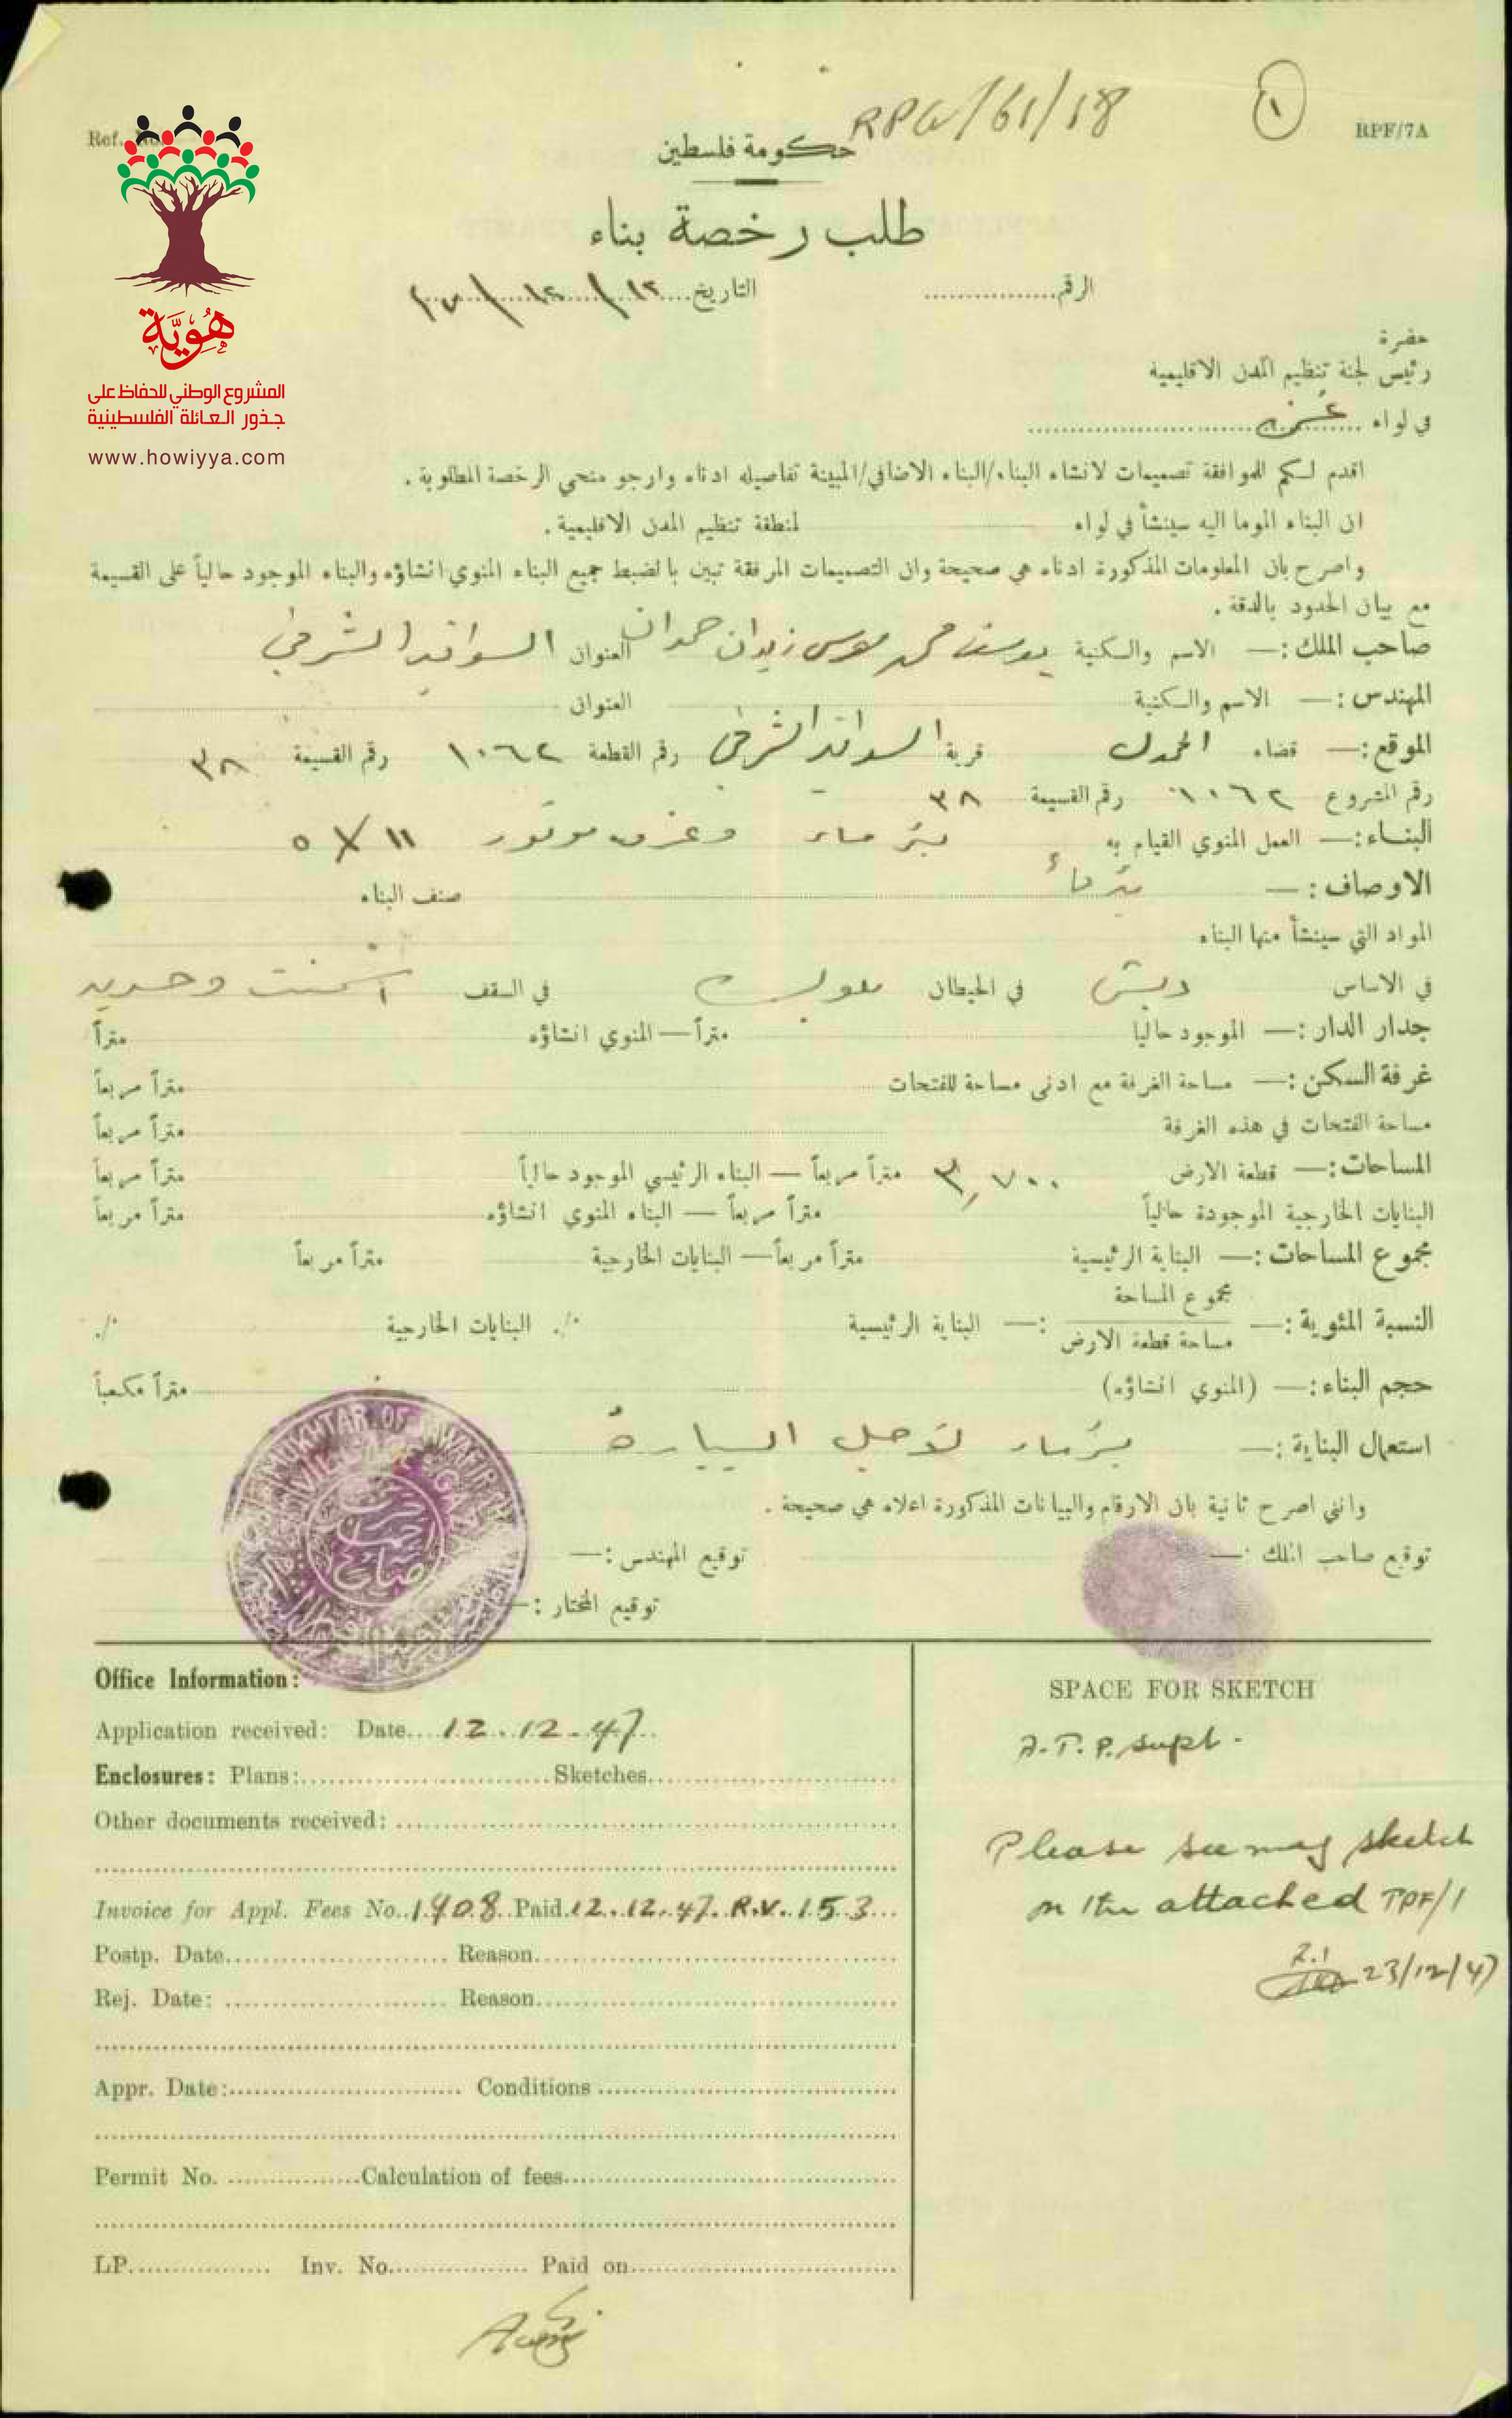 RPG/61/18
١
RPF/7A
Ref. No.
حكومة فلسطين
طلب رخصة بناء
الرقم
التاريخ ١٢ / ١٢
هُوِيَّة
المشروع الوطني للحفاظ على
جذور العائلة الفلسطينية
www.howiyya.com
حضرة
رئيس لجنة تنظيم المدن الاقليمية
في لواء غزه
اقدم لكم للموافقة تصميمات لانشاء البناء/البناء الاضافي/المبينة تفاصيله ادناه وارجو منحي الرخصة المطلوبة .
ان البناء الموما اليه سينشأ في لواء لمنطقة تنظيم المدن الاقليمية .
واصرح بان المعلومات المذكورة ادناه هي صحيحة وان التصميمات المرفقة تبين بالضبط جميع البناء المنوي انشاؤه والبناء الموجود حالياً على القسيمة
مع بيان الحدود بالدقة .
صاحب الملك :— الاسم والكنية يوسف محمد موسى زيدان حمدان العنوان السوافير الشرقي
المهندس :— الاسم والكنية العنوان
الموقع :— قضاء المجدل قرية السوافير الشرقي رقم القطعة ١٠٦٢ رقم القسيمة ٣٨
رقم المشروع ١٠٦٢ رقم القسيمة ٣٨
البناء :— العمل المنوي القيام به بئر ماء وغرف موتور ١١ X ٥
الاوصاف :— بئر ماء صنف البناء
المواد التي سينشأ منها البناء
في الاساس دبش في الحيطان بلوك في السقف اسمنت وحديد
جدار الدار :— الموجود حاليا متراً — المنوي انشاؤه متراً
غرفة السكن :— مساحة الغرفة مع ادنى مساحة للفتحات متراً مربعاً
مساحة الفتحات في هذه الغرفة متراً مربعاً
المساحات :— قطعة الارض ٣,٧٠٠ متراً مربعاً — البناء الرئيسي الموجود حالياً متراً مربعاً
البنايات الخارجية الموجودة حالياً متراً مربعاً — البناء المنوي انشاؤه متراً مربعاً
مجموع المساحات :— البناية الرئيسية متراً مربعاً — البنايات الخارجية متراً مربعاً
النسبة المئوية :— مجموع المساحة / مساحة قطعة الارض :— البناية الرئيسية ٪ البنايات الخارجية ٪
حجم البناء :— (المنوي انشاؤه) متراً مكعباً
استعمال البناية :— بئر ماء لاجل البيارة
وانني اصرح ثانية بان الارقام والبيانات المذكورة اعلاه هي صحيحة .
توقيع صاحب الملك :— توقيع المهندس :—
توقيع المختار :—
Office Information:
Application received: Date 12.12.47
Enclosures: Plans: Sketches
Other documents received:
Invoice for Appl. Fees No. 1408 Paid 12.12.47. R.V. 153
Postp. Date Reason
Rej. Date: Reason
Appr. Date: Conditions
Permit No. Calculation of fees
LP. Inv. No. Paid on
SPACE FOR SKETCH
A.T.P. Supt.
Please see my sketch
on the attached TPF/1
23/12/47